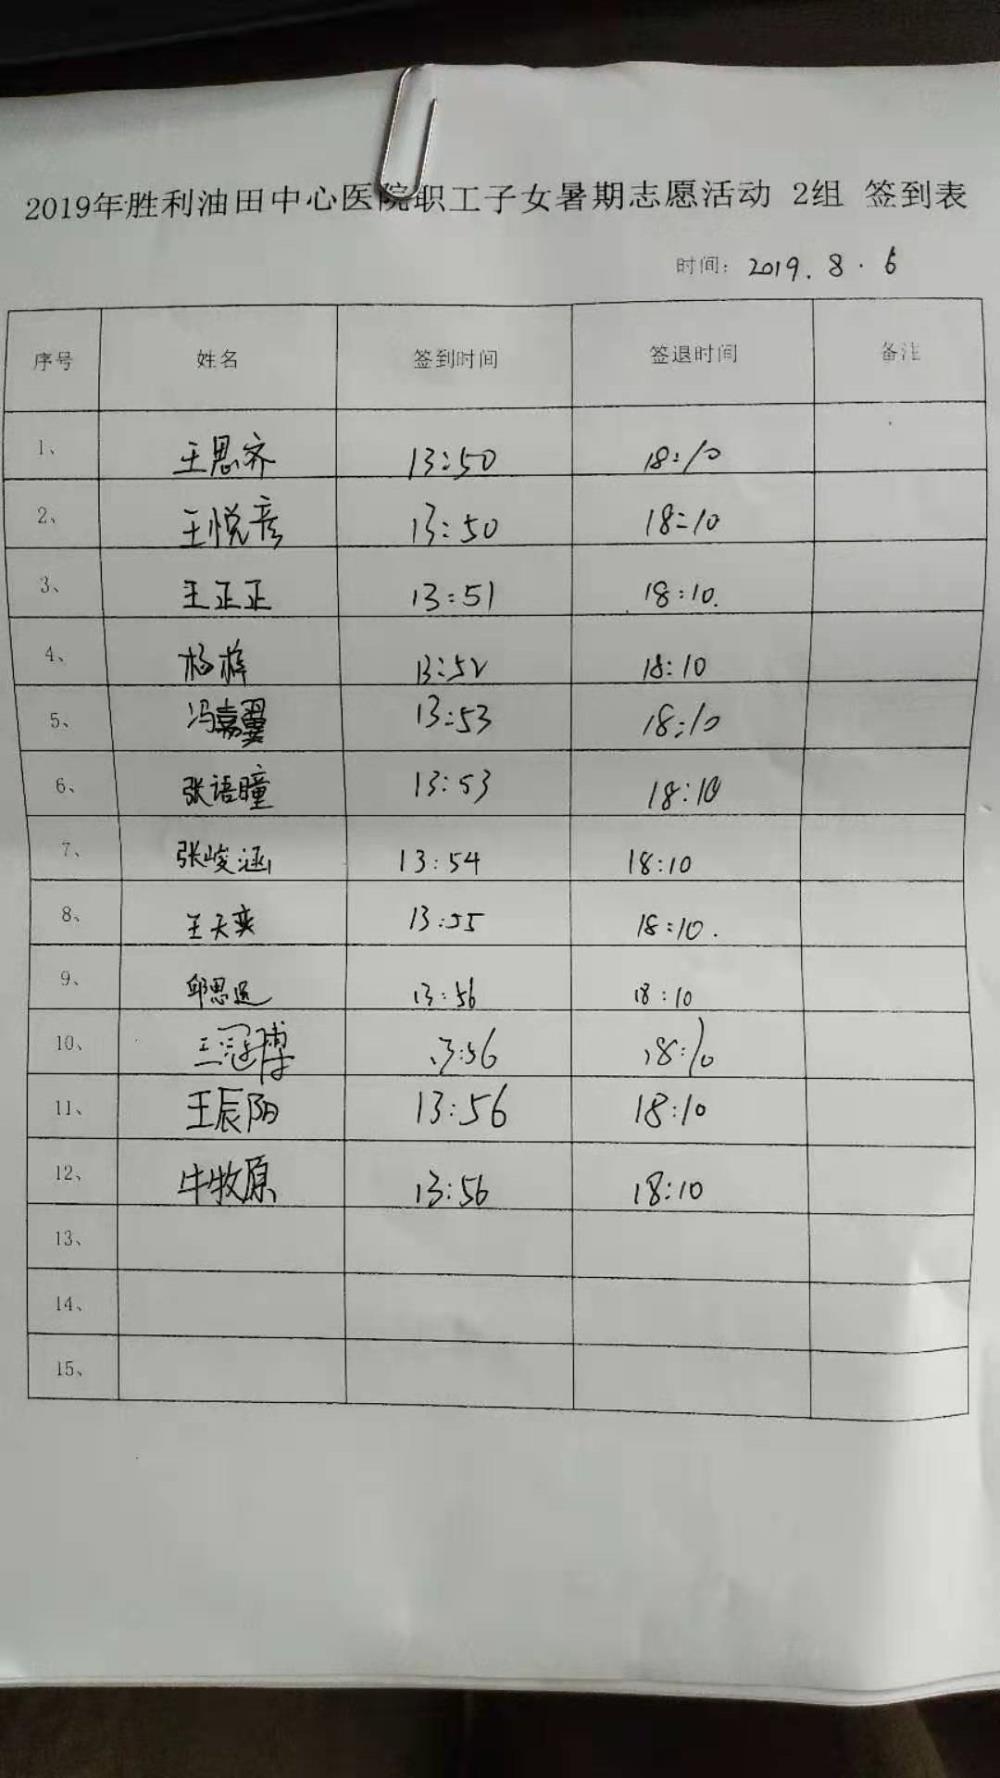 2019年胜利油田中心医院职工子女暑期志愿活动 2组 签到表
时间: 2019.8.6
序号 姓名 签到时间 签退时间 备注
1、 王思齐 13:50 18:10
2、 王悦彦 13:50 18:10
3、 王正正 13:51 18:10.
4、 杨梓 13:52 18:10
5、 冯嘉翼 13:53 18:10
6、 张语瞳 13:53 18:10
7、 张峻涵 13:54 18:10
8、 王天奕 13:55 18:10.
9、 邱思 13:56 18:10
10、 王冠博 13:56 18:10
11、 王辰阳 13:56 18:10
12、 牛牧原 13:56 18:10
13、
14、
15、